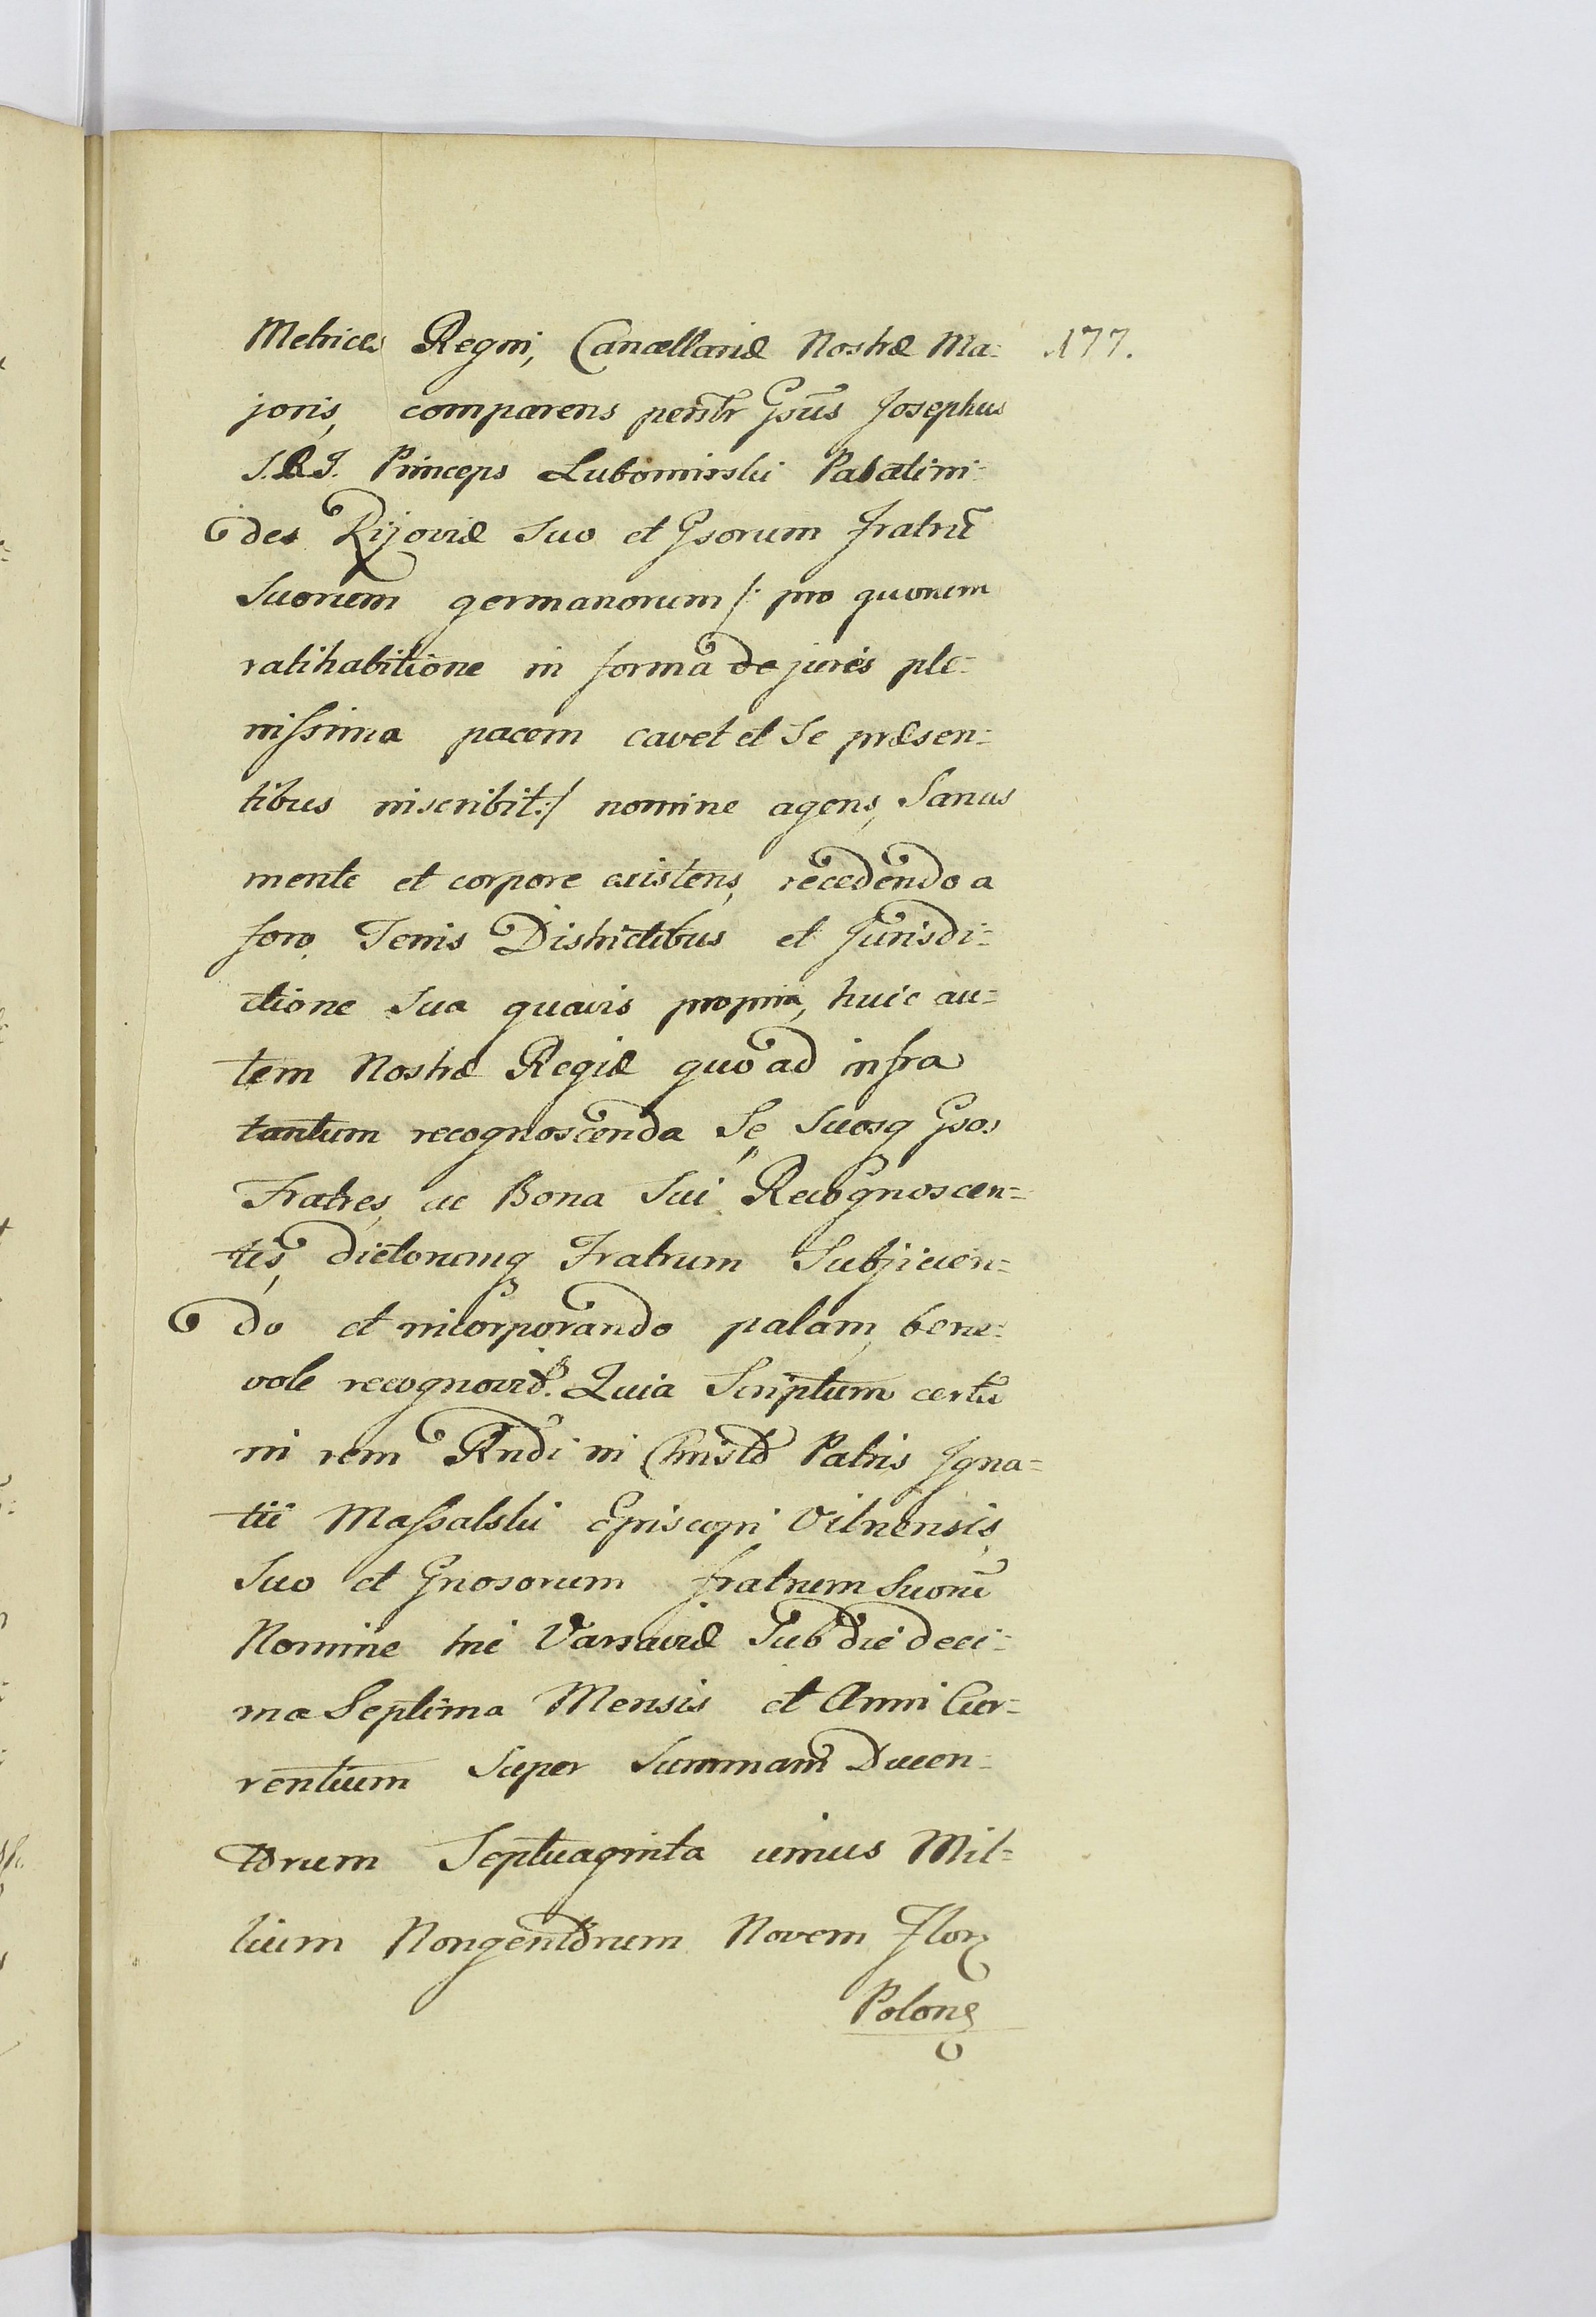 Metrices Regni, Cancellariæ Nostræ Ma= 177.
joris, comparens persr̃ Gsũs Josephus
S.R.J. Princeps Lubomirski Palatini=
des Kijoviæ Suo et Gsorum fratrũ
Suorum germanorum /: pro quorum
ratihabitione in forma de juris ple=
nissima pacem cavet et Se præsen=
tibus inscribit :/ nomine agens, Sanus
mente et corpore existens, recedendo a
foro, Terris Districtibus et Jurisdi=
ctione Sua quavis propria, huic au=
tem Nostræ Regiæ quo ad infra
tantum recognoscenda Se, Suosq Gsos
Fratres, ac Bona Sui Recognoscen=
tis, dictorumq Fratrum Subjicien=
do et incorporando palam, bene=
vole recognovit. Quia Scriptum certũ
in rem Rndi in Christo Patris Igna=
tii Massalski Episcopi Vilnensis,
Suo et Gnosorum fratrum Suorũ
Nomine hic Varsaviæ Sub die deci=
ma Septima Mensis et Anni Cur=
rentium Super Summam Ducen=
torum Septuaginta unius Mil=
lium Nongentorum Novem Flor
Polon